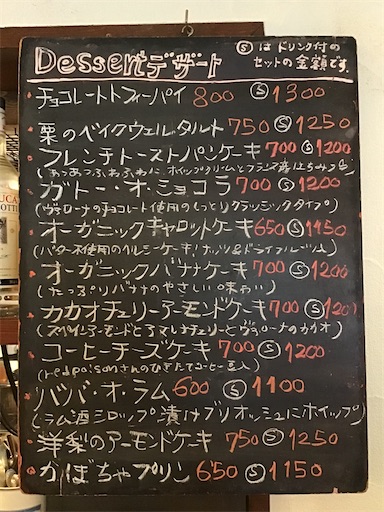 Dessert デザート
Ⓢはドリンク付の
セットの金額です。
チョコレートトフィーパイ 800 Ⓢ 1300
栗のベイクウェルタルト 750 Ⓢ 1250
フレンチトーストパンケーキ 700 Ⓢ 1200
(あつあつふわふわに、ホイップクリームとフランス産はちみつを)
ガトー・オ・ショコラ 700 Ⓢ 1200
(ヴァローナのチョコレート使用のしっとりクラッシックタイプ)
オーガニックキャロットケーキ 650 Ⓢ 1150
(バター不使用のヘルシーケーキ!ナッツ&ドライフルーツ入)
オーガニックバナナケーキ 700 Ⓢ 1200
(たっぷりバナナのやさしい味わい)
カカオチェリーアーモンドケーキ 700 Ⓢ 120
(スペインアーモンドとマレナチェリーとヴァローナのカカオ)
コーヒーチーズケーキ 700 Ⓢ 1200
(redpoisonさんのひきたてコーヒー豆入)
ババ・オ・ラム 600 Ⓢ 1100
(ラム酒シロップ漬けブリオッシュにホイップ)
洋梨のアーモンドケーキ 750 Ⓢ 1250
かぼちゃプリン 650 Ⓢ 1150